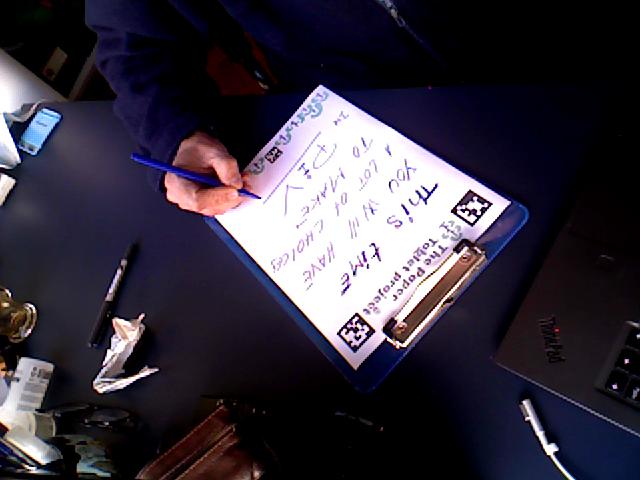 The Paper
Tablet project
This time
You Will HAVE
A LOT OF CHOICES
TO MAKE
DIV
ThinkPad